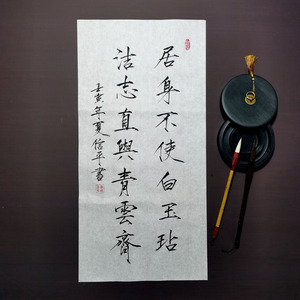 居身不使白玉玷
洁志直與青雲齊
壬寅年夏俗平書